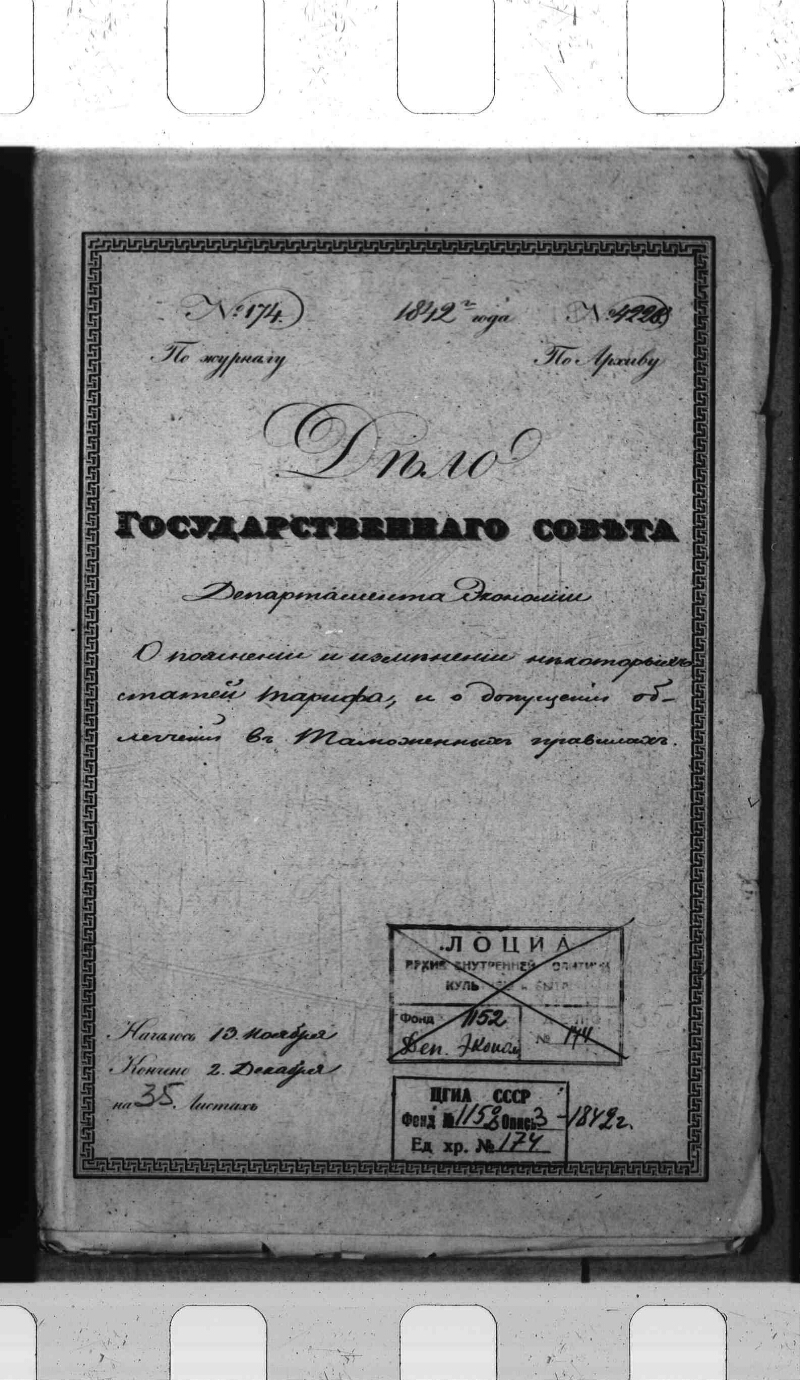 № 174. 1842 г. года № 4228
По журналу По Архиву
Дѣло
ГОСУДАРСТВЕННАГО СОВѢТА
Департамента Экономіи
О поясненіи и измѣненіи нѣкоторыхъ
статей тарифа, и о допущеніи об-
легченій въ Таможенныхъ правилахъ.
ЛОЦИА
АРХИВ ВНУТРЕННЕЙ ПОЛИТИКИ
КУЛЬ И БЫТА
Фонд 1152
Деп. Эконом № 174
Началось 13 Ноября
Кончено 2. Декабря
на 35. листахъ
ЦГИА СССР
Фонд № 1152 Опись 3 - 1842 г.
Ед хр. № 174